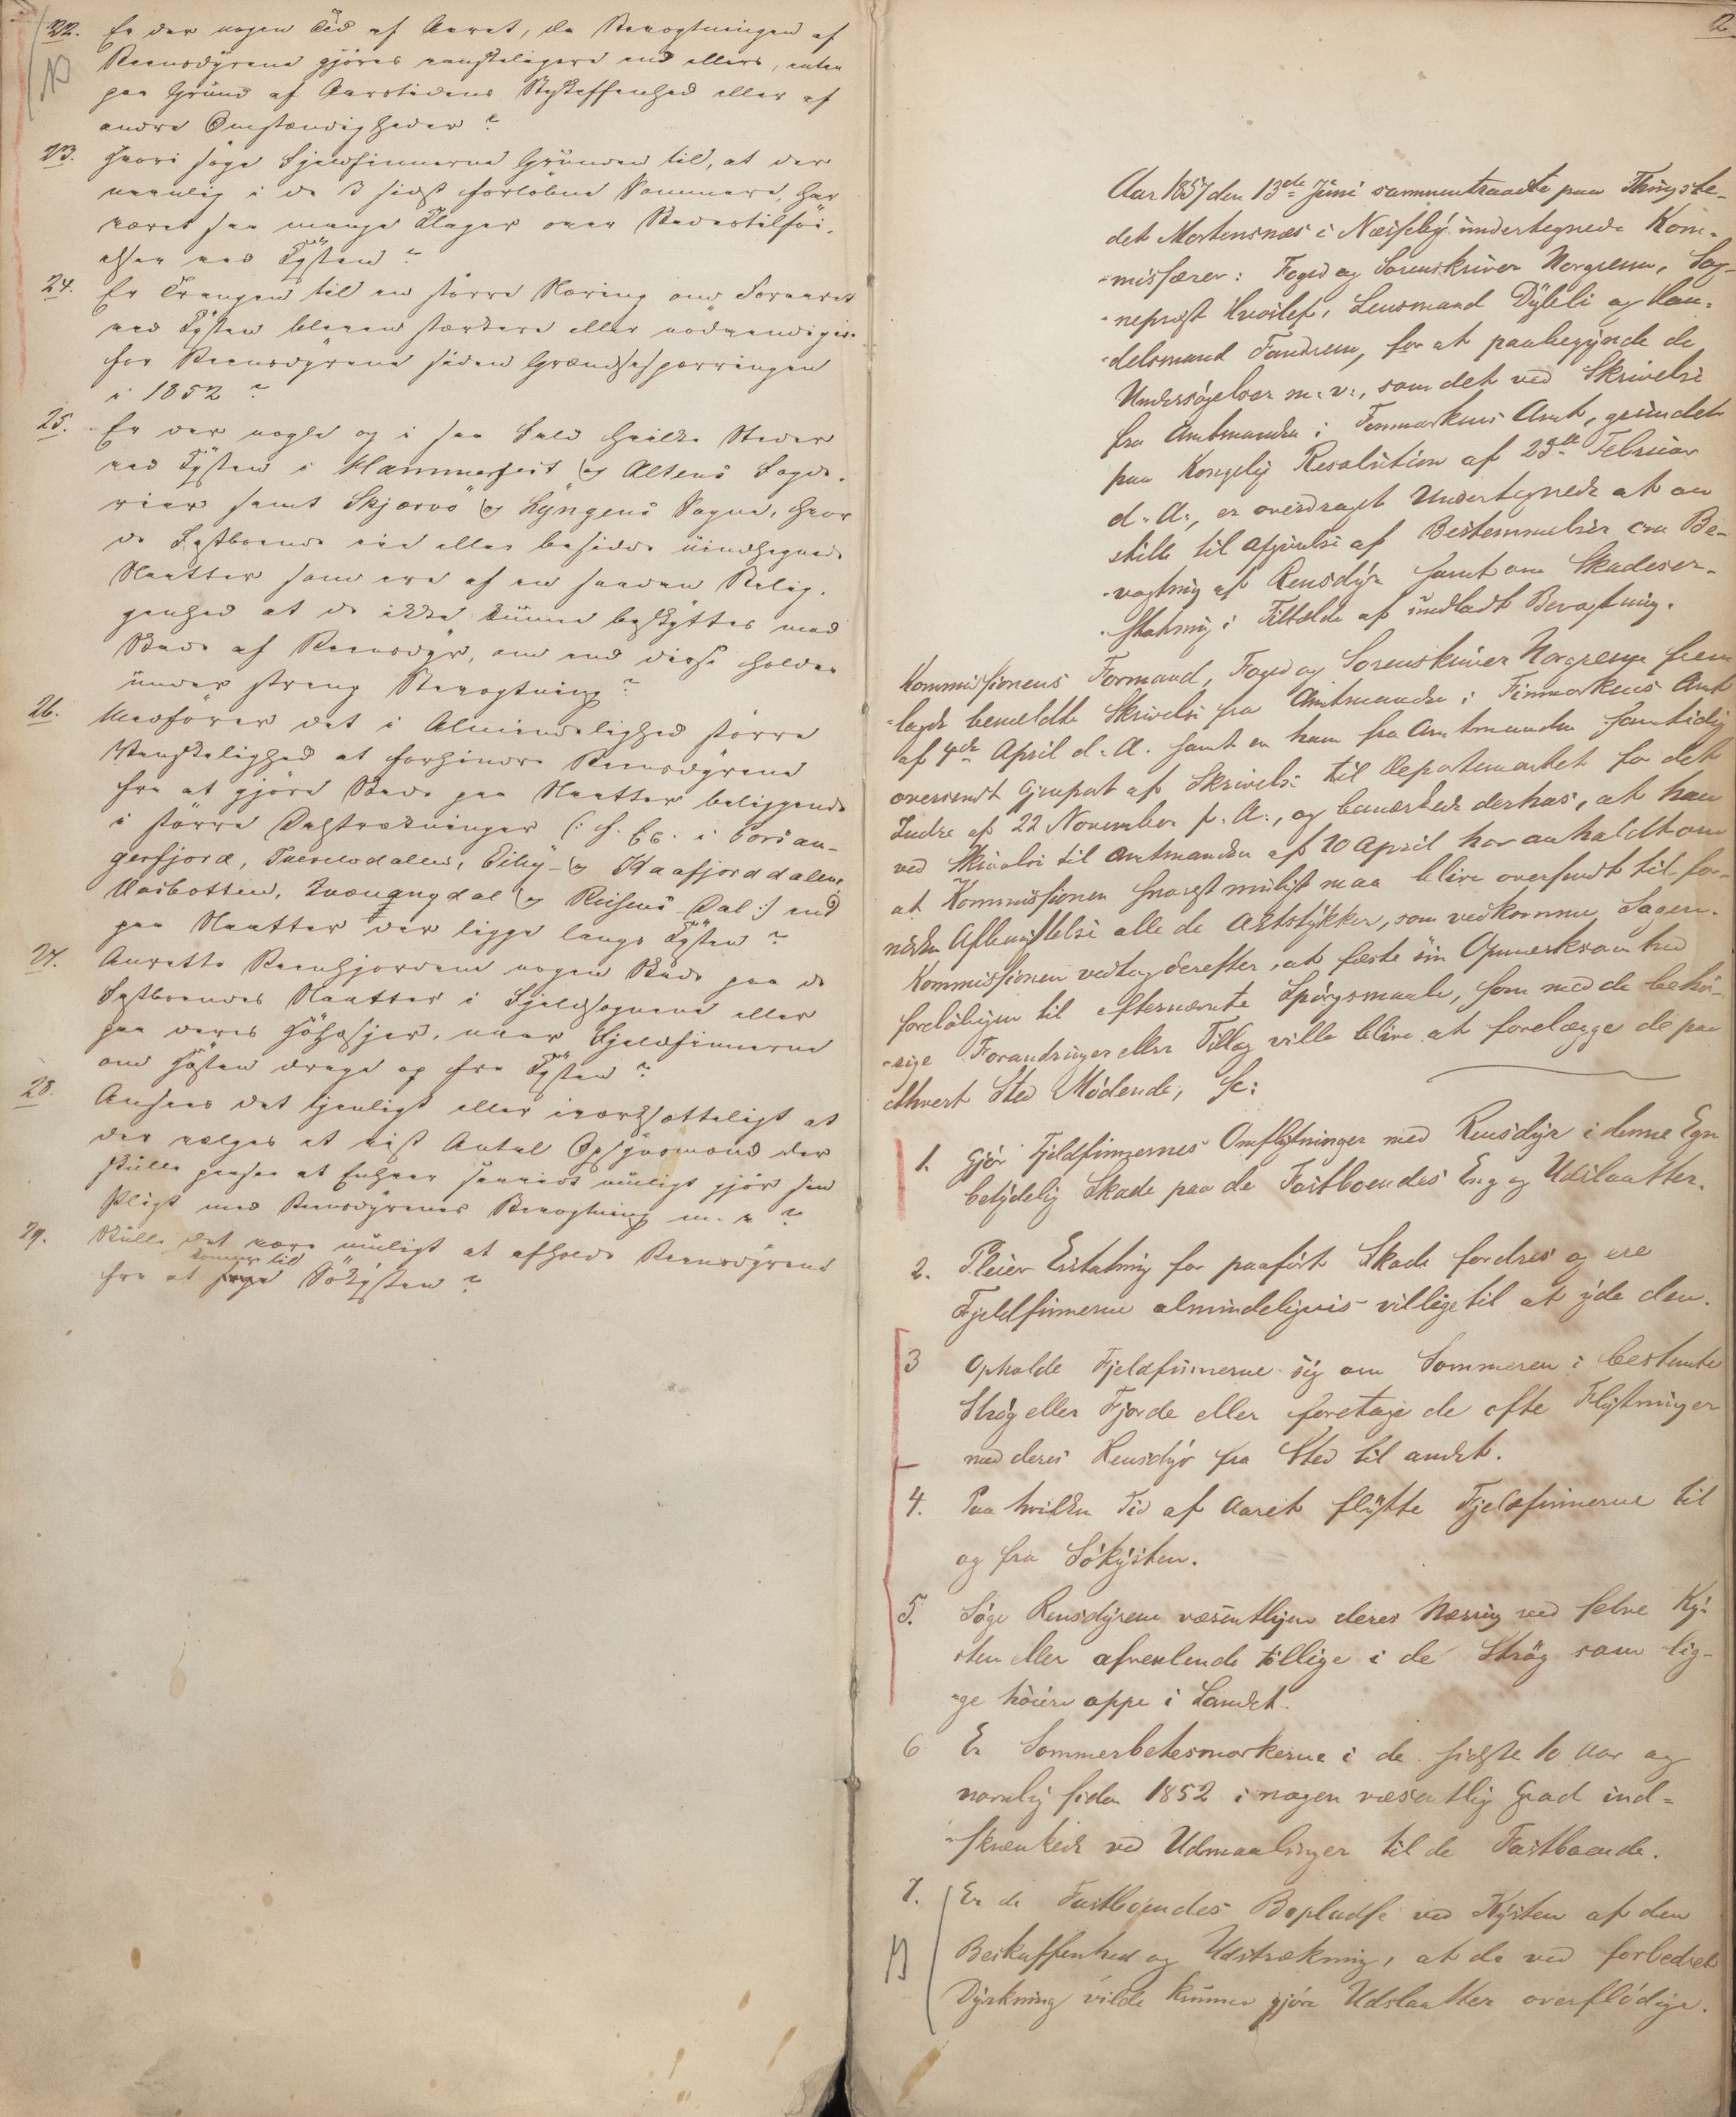 22. Er der nogen Tid af Aaret, da Bevogtningen af
Reensdyrene gjöres vanskeligere end ellers, enten
paa Grund af Aarstidens Beskaffenhed eller af
andre Omstændigheder?
23. Hvori søge Fjeldfinnerne Grunden til, at der
navnlig i de 3 sidst forløbne Sommere, har
været saa mange Klager over Skadestilföi-
elser ved Kysten?
24. Er Trangen til en større Næring om Foraaret
ved Kysten bleven stærkere eller nödvendigere
for Reensdyrene siden Grændsespærringen
i 1852?
25. Er der nogle og i saa Fald hvilke Steder
ved Kysten i Hammerfest og Altens Fogde-
rier samt Skjærvö og Lyngens Sogne, hvor
de Fastboende eie eller besidde uindhegnede
Slaatter som ere af en saadan Belig-
genhed at de ikke kunne beskyttes mod
Skade af Reensdyr, om end disse holdes
under streng Bevogtning?
26. Medfører det i Almindelighed større
Vanskelighed at forhindre Reensdyrene
fra at gjøre Skade paa Slaatter beliggende
i større Dalstrækninger (: f. Ex. i Porsan-
gerfjord, Tverelvdalen, Eiby- og Kaafjorddalen,
Varbotten, Kvænangdal og Reisens Dal :) end
paa Slaatter der ligge langs Kysten?
27. Anrette Reenhjordene nogen Skade paa de
Fastboendes Slaatter i Fjeldsognene eller
paa deres Höhæsjer, naar Fjeldfinnerne
om Hösten drage op fra Kysten?
28. Ansees det tjenligt eller iværksætteligt at
der vælges et vist Antal Opsynsmænd der
skulle paasee at Enhver saavidt muligt gjör sin
Pligt med Reensdyrenes Bevogtning m. v.?
29. Skulle det være muligt at afholde Reensdyrene
komme til
fra at søge Søkysten?
2.
Aar 1857 den 13de Juni sammentraadte paa Thingste-
det Mortensnæs i Næsseby undertegnede Kom-
-missærer: Foged og Sorenskriver Norgreen, Sog-
-nepræst Hvoslef, Lensmand Dybli og Han-
-delsmand Fandrem, for at paabegynde de
Undersögelser m. v., som det ved Skrivelse
fra Amtmanden i Finmarkens Amt, grundet
paa Kongelig Resolution af 25de Februar
d. A., er overdraget Undertegnede at an
stille til Afgivelse af Bestemmelser om Be-
-vogtning af Rensdyr samt om Skadeser-
-statning i Tilfælde af undladt Bevogtning.
Kommissionens Formand, Foged og Sorenskriver Norgreen frem
-lagde bemeldte Skrivelse fra Amtmanden i Finmarkens Amt
af 4de April d. A. samt en ham fra Amtmanden samtidig
oversendt Gjenpart af Skrivelse til Departementet for det
Indre af 22 November f. A., og bemærkede derhos, at han
ved Skrivelse til Amtmanden af 20 April har anholdt om
at Kommissionen snarest muligt maa blive oversendt til for-
nöden Afbenyttelse alle de Aktstykker, som vedkomme Sagen.
Kommissionen vedtog derefter, at fæste sin Opmærksomhed
forelöbigen til efternævnte Spörgsmaale, som med de behö-
-rige Forandringer eller Tillæg ville blive at forelægge de paa
ethvert Sted Mödende, sc:
1. Gjör Fjeldfinnernes Omflytninger med Rensdyr i denne Egn
betydelig Skade paa de Fastboendes Eng og Udslaatter.
2. Pleier Erstatning for paafört Skade fordres og ere
Fjeldfinnerne almindeligvis villige til at yde den.
3 Opholde Fjeldfinnerne sig om Sommeren i bestemte
Strög eller Fjorde eller foretage de ofte Flytninger
med deres Rensdyr fra Sted til andet.
4. Paa hvilken Tid af Aaret flytte Fjeldfinnerne til
og fra Sökysten.
5. Söge Rensdyrene væsentligen deres Næring ved selve Ky-
sten eller afvexlende tillige i de Strög som lig-
-ge höiere oppe i Landet.
6 Er Sommerbetesmarkerne i de sidste 10 Aar og
navnlig siden 1852 i nogen væsentlig Grad ind-
-skrænkede ved Udmaalinger til de Fastboende.
7. Er de Fastboendes Bopladse ved Kysten af den
Beskaffenhed og Udstrækning, at de ved forbedret
Dyrkning vilde kunne gjöre Udslaatter overflödige.